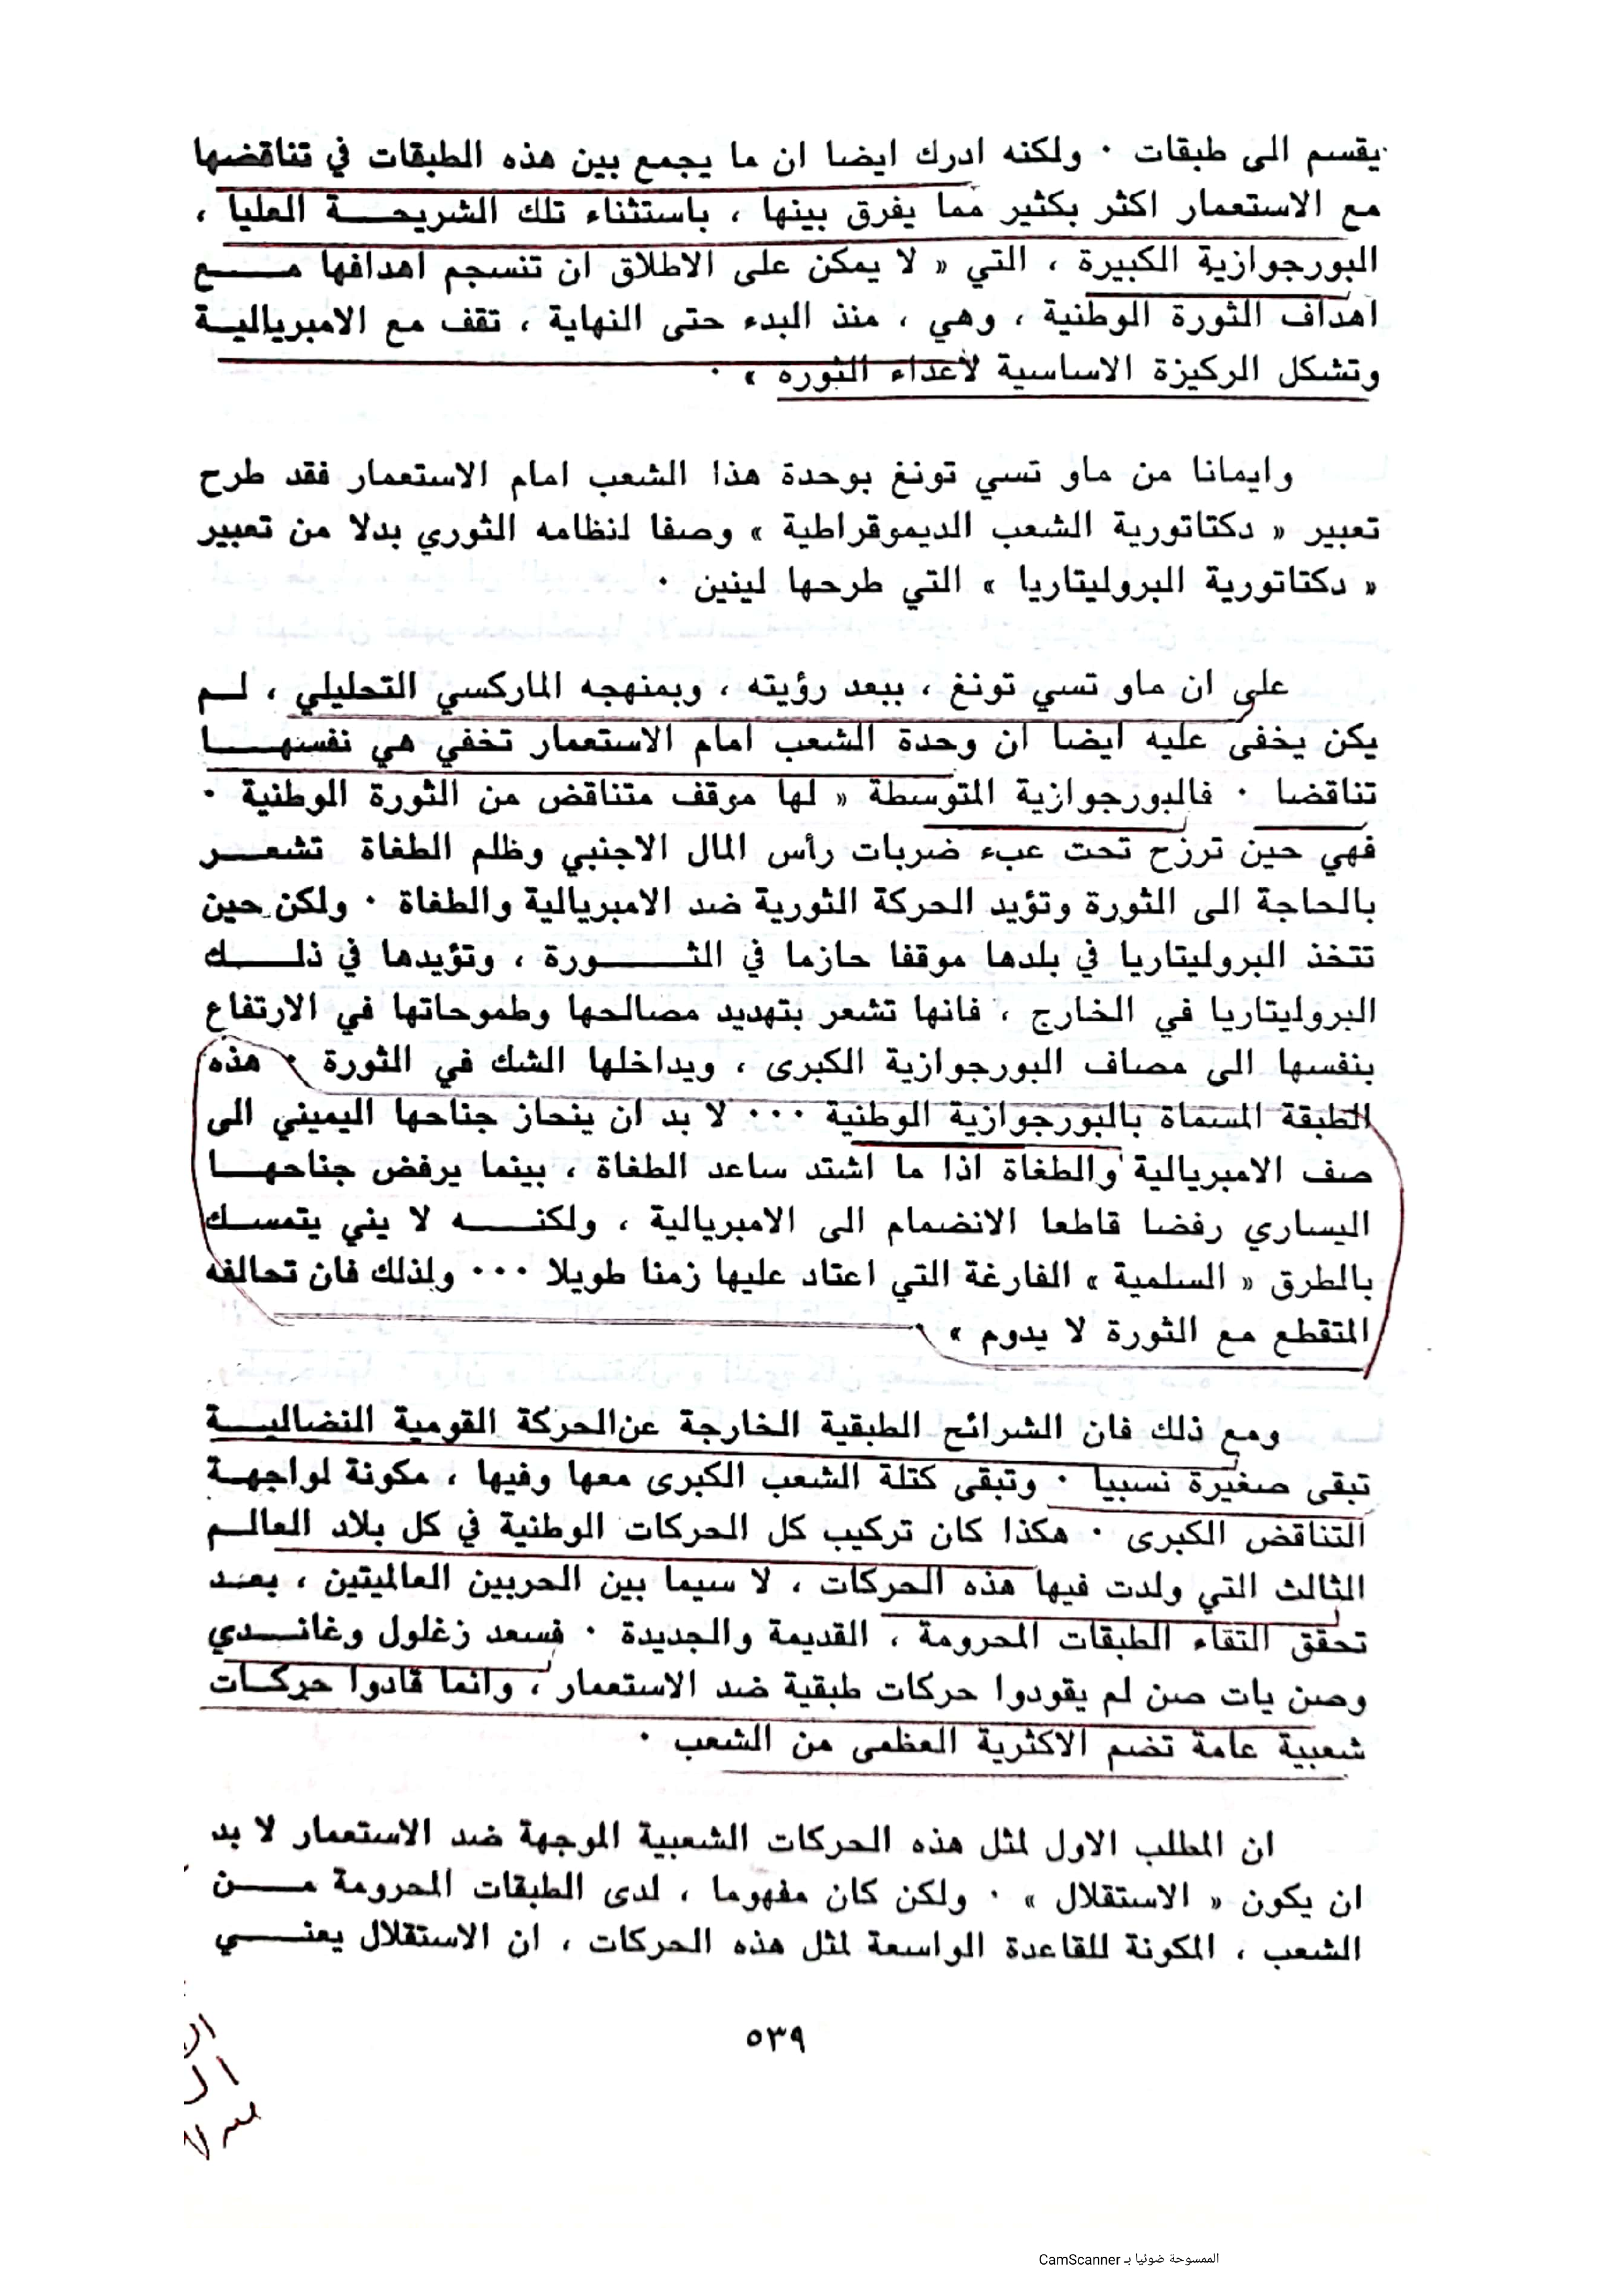 يقسم الى طبقات · ولكنه ادرك ايضا ان ما يجمع بين هذه الطبقات في تناقضها
مع الاستعمار اكثر بكثير مما يفرق بينها ، باستثناء تلك الشريحة العليا ،
البورجوازية الكبيرة ، التي « لا يمكن على الاطلاق ان تنسجم اهدافها مع
اهداف الثورة الوطنية ، وهي ، منذ البدء حتى النهاية ، تقف مع الامبريالية
وتشكل الركيزة الاساسية لأعداء الثورة » ·
وايمانا من ماو تسي تونغ بوحدة هذا الشعب امام الاستعمار فقد طرح
تعبير « دكتاتورية الشعب الديموقراطية » وصفا لنظامه الثوري بدلا من تعبير
« دكتاتورية البروليتاريا » التي طرحها لينين ·
على ان ماو تسي تونغ ، ببعد رؤيته ، وبمنهجه الماركسي التحليلي ، لم
يكن يخفى عليه ايضا ان وحدة الشعب امام الاستعمار تخفي هي نفسها
تناقضا · فالبورجوازية المتوسطة « لها موقف متناقض من الثورة الوطنية ·
فهي حين ترزح تحت عبء ضربات رأس المال الاجنبي وظلم الطغاة تشعر
بالحاجة الى الثورة وتؤيد الحركة الثورية ضد الامبريالية والطغاة · ولكن حين
تتخذ البروليتاريا في بلدها موقفا حازما في الثورة ، وتؤيدها في ذلك
البروليتاريا في الخارج ، فانها تشعر بتهديد مصالحها وطموحاتها في الارتفاع
بنفسها الى مصاف البورجوازية الكبرى ، ويداخلها الشك في الثورة · هذه
الطبقة المسماة بالبورجوازية الوطنية ··· لا بد ان ينحاز جناحها اليميني الى
صف الامبريالية والطغاة اذا ما اشتد ساعد الطغاة ، بينما يرفض جناحها
اليساري رفضا قاطعا الانضمام الى الامبريالية ، ولكنه لا يني يتمسك
بالطرق « السلمية » الفارغة التي اعتاد عليها زمنا طويلا ··· ولذلك فان تحالفه
المتقطع مع الثورة لا يدوم » ·
ومع ذلك فان الشرائح الطبقية الخارجة عن الحركة القومية النضالية
تبقى صغيرة نسبيا · وتبقى كتلة الشعب الكبرى معها وفيها ، مكونة لواجهة
التناقض الكبرى · هكذا كان تركيب كل الحركات الوطنية في كل بلاد العالم
الثالث التي ولدت فيها هذه الحركات ، لا سيما بين الحربين العالميتين ، بعد
تحقق التقاء الطبقات المحرومة ، القديمة والجديدة · فسعد زغلول وغاندي
وصن يات صن لم يقودوا حركات طبقية ضد الاستعمار ، وانما قادوا حركات
شعبية عامة تضم الاكثرية العظمى من الشعب ·
ان المطلب الاول لمثل هذه الحركات الشعبية الموجهة ضد الاستعمار لا بد
ان يكون « الاستقلال » · ولكن كان مفهوما ، لدى الطبقات المحرومة من
الشعب ، المكونة للقاعدة الواسعة لمثل هذه الحركات ، ان الاستقلال يعني
٥٣٩
الممسوحة ضوئيا بـ CamScanner